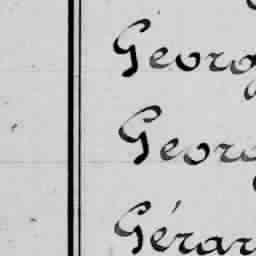 Georg
Georg
Gérar